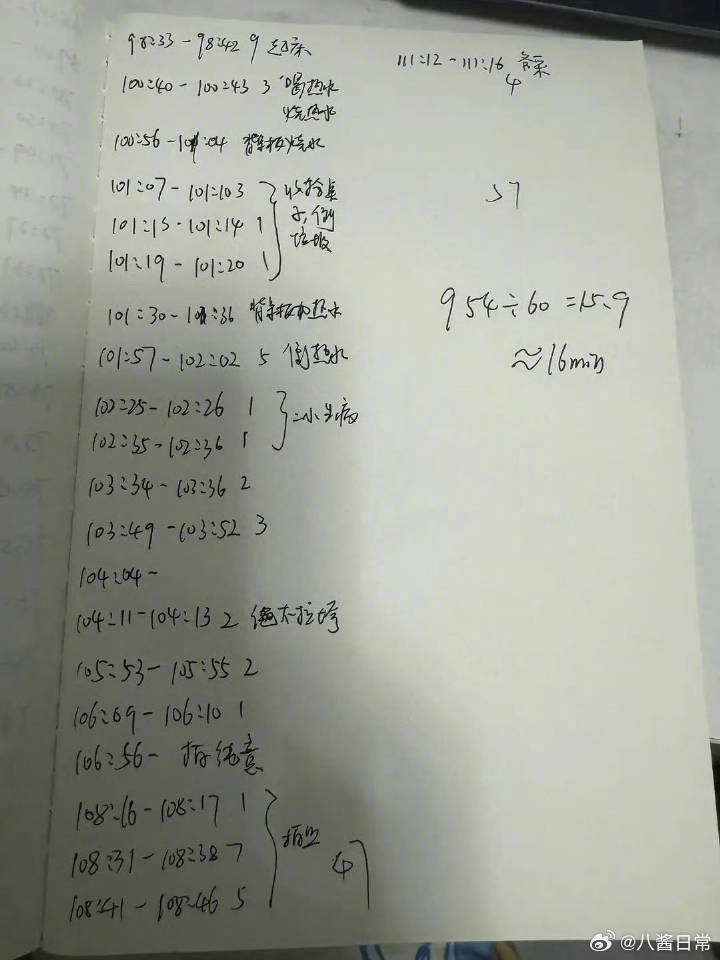 98:33 - 98:42 9 起床
100:40 - 100:43 3 喝热水
烧热水
100:56 - 101:04 烧水
101:07 - 101:103
101:13 - 101:14 1
101:19 - 101:20 1
收拾桌
子,倒
垃圾
101:30 - 101:36 热水
101:57 - 102:02 5 倒热水
102:25 - 102:26 1
102:35 - 102:36 1
103:34 - 103:36 2
103:49 - 103:52 3
104:04 -
104:11 - 104:13 2
105:53 - 105:55 2
106:09 - 106:10 1
106:56 -
108:16 - 108:17 1
108:31 - 108:38 7
108:41 - 108:46 5
47
111:12 - 111:16 备菜
4
57
954÷60=15.9
≈16min
@八酱日常